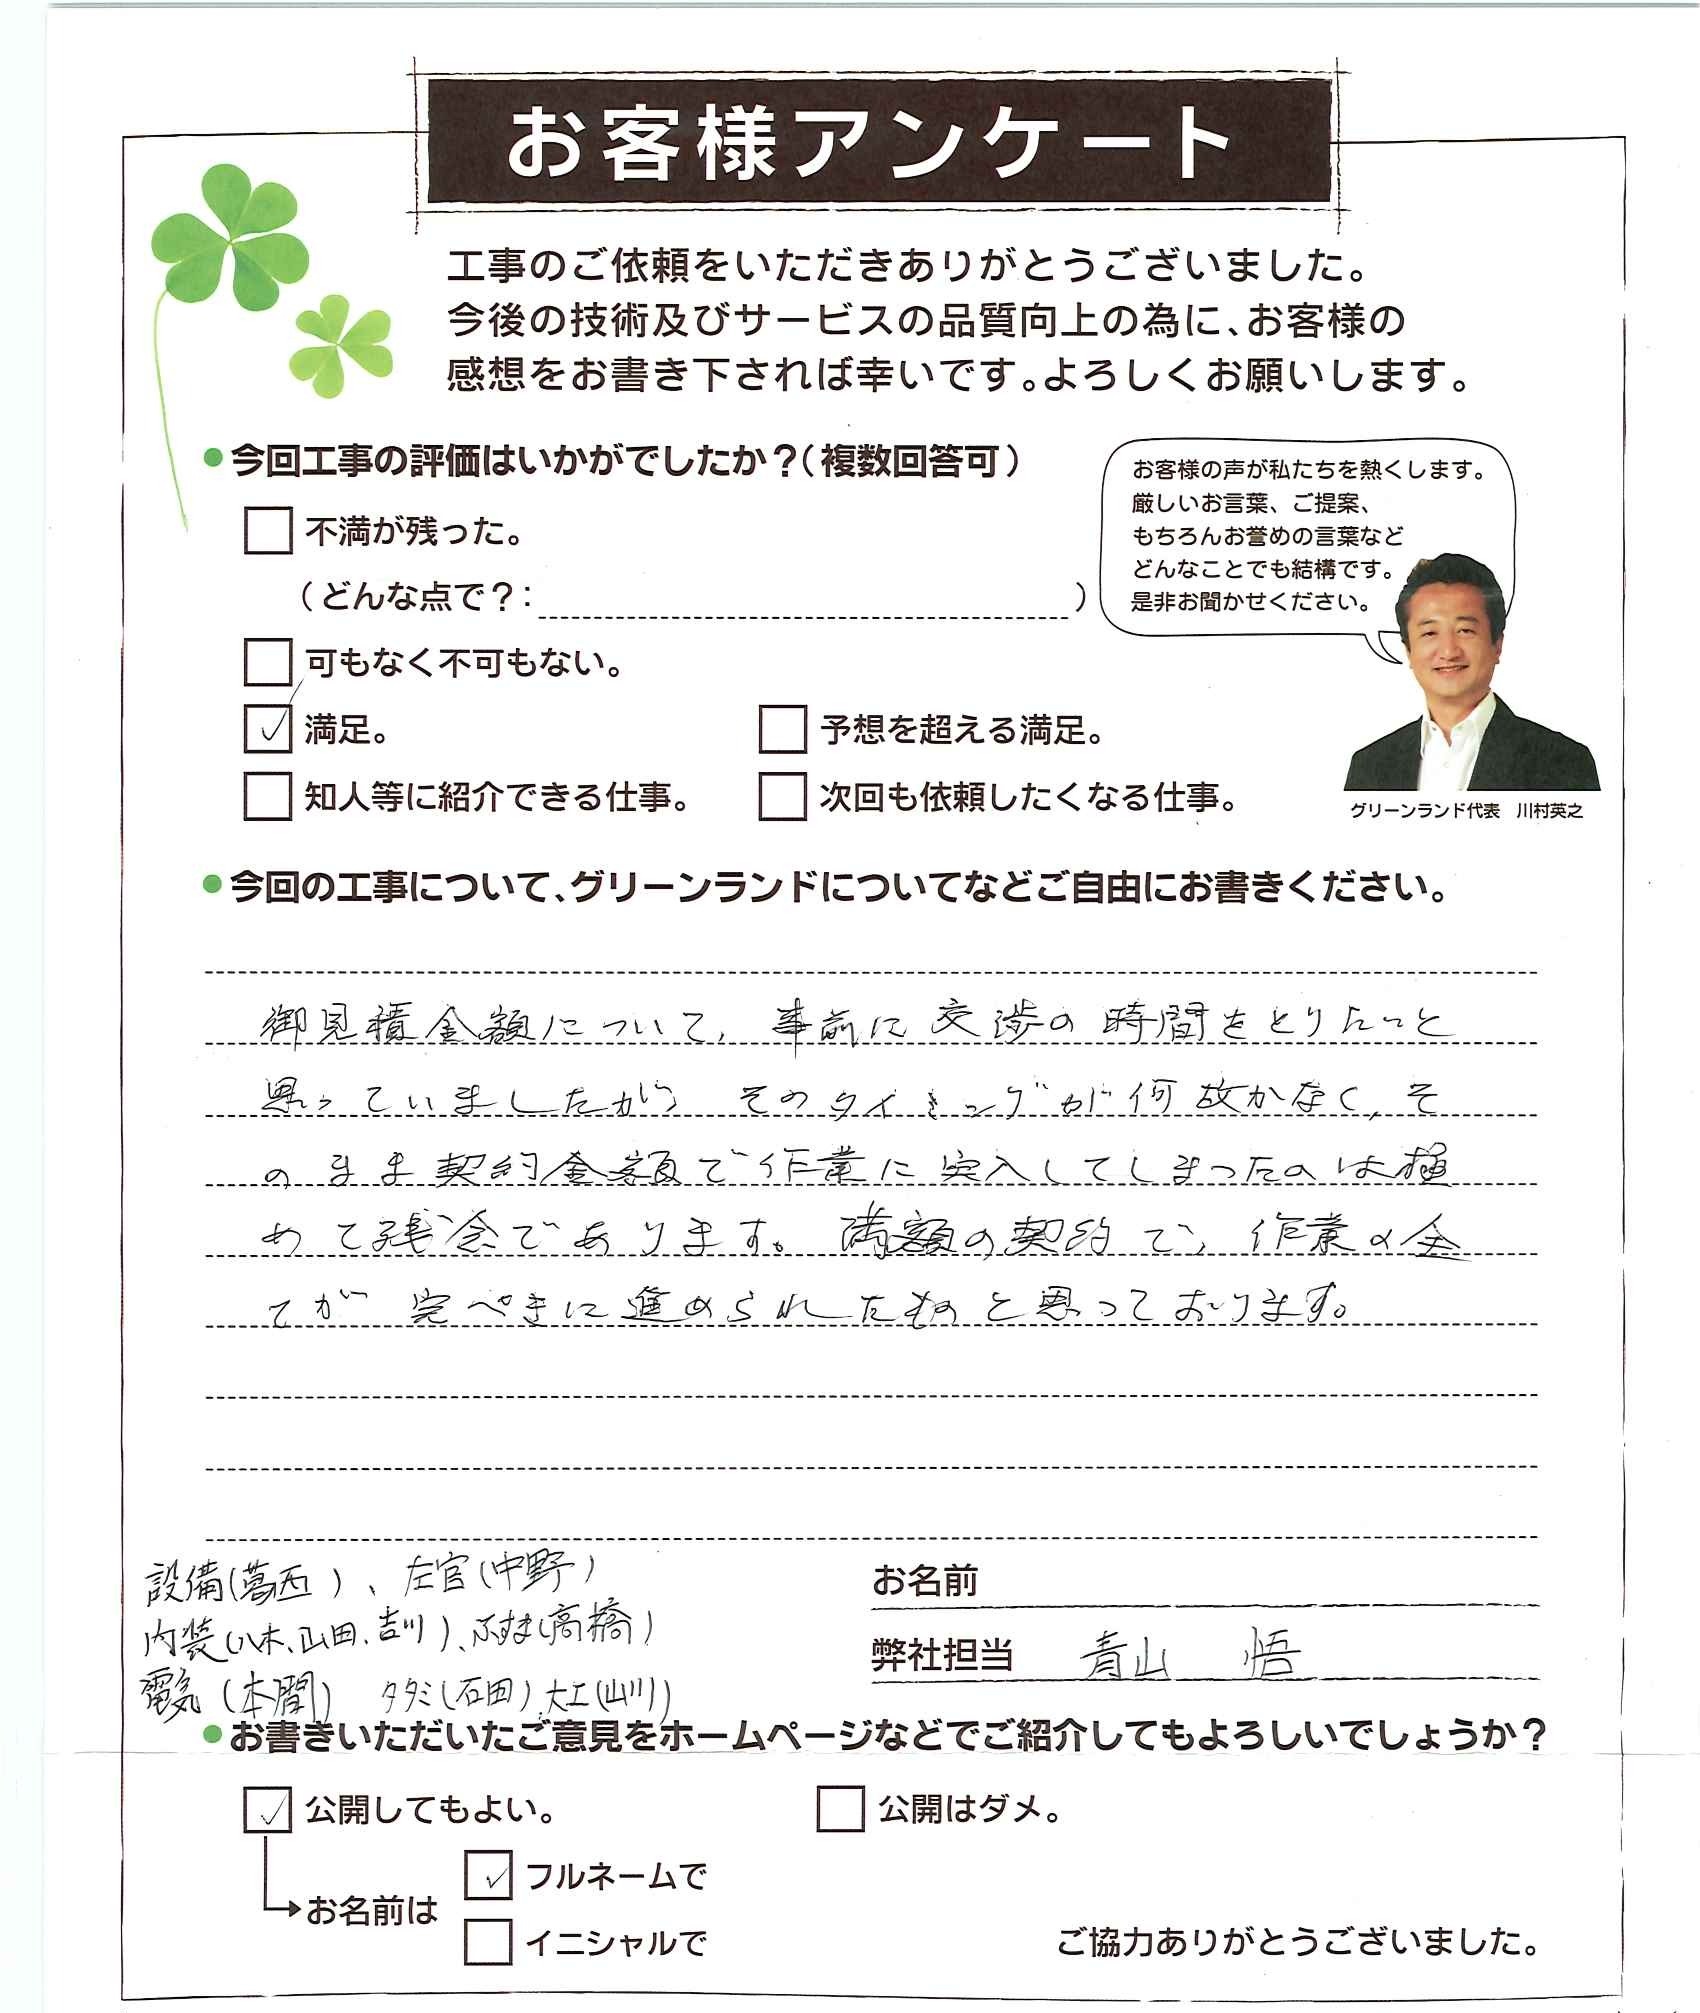 お客様アンケート
工事のご依頼をいただきありがとうございました。
今後の技術及びサービスの品質向上の為に、お客様の
感想をお書き下されば幸いです。よろしくお願いします。
今回工事の評価はいかがでしたか？（複数回答可）
不満が残った。
（どんな点で？： ）
可もなく不可もない。
満足。
予想を超える満足。
知人等に紹介できる仕事。
次回も依頼したくなる仕事。
お客様の声が私たちを熱くします。
厳しいお言葉、ご提案、
もちろんお誉めの言葉など
どんなことでも結構です。
是非お聞かせください。
グリーンランド代表 川村英之
今回の工事について、グリーンランドについてなどご自由にお書きください。
御見積金額について、事前に交渉の時間をとりたっと
思っていましたが、そのタイミングが何故かなく、そ
のまま契約金額で作業に突入してしまったのは極
めて残念であります。満額の契約で、作業の全
てが完ぺきに進められたものと思っております。
設備(葛西)、左官(中野)
内装(八木、山田、吉川)、ふすま(高橋)
電気(本間) タタミ(石田)、大工(山川)
お名前
弊社担当 青山 悟
お書きいただいたご意見をホームページなどでご紹介してもよろしいでしょうか？
公開してもよい。
公開はダメ。
お名前は
フルネームで
イニシャルで
ご協力ありがとうございました。